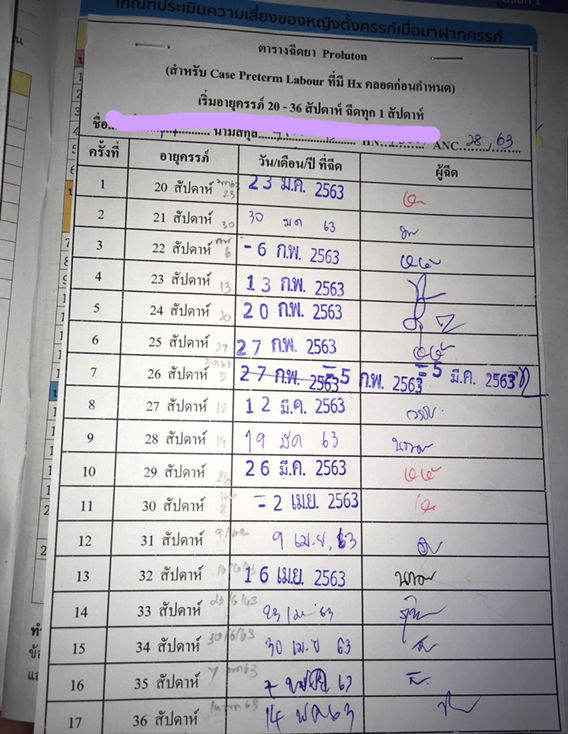 เกณฑ์ประเมินความเสี่ยงของหญิงตั้งครรภ์เมื่อมาฝากครรภ์
ตารางฉีดยา Proluton
(สำหรับ Case Preterm Labour ที่มี Hx คลอดก่อนกำหนด)
เริ่มอายุครรภ์ 20 - 36 สัปดาห์ ฉีดทุก 1 สัปดาห์
ชื่อ.......... นามสกุล.......... HN.......... ANC. 28/63
ครั้งที่ อายุครรภ์ วัน/เดือน/ปี ที่ฉีด ผู้ฉีด
1 20 สัปดาห์ 23 23 ม.ค. 2563
2 21 สัปดาห์ 30 30 มค 63
3 22 สัปดาห์ 6 - 6 ก.พ. 2563
4 23 สัปดาห์ 13 13 ก.พ. 2563
5 24 สัปดาห์ 20 20 ก.พ. 2563
6 25 สัปดาห์ 27 27 ก.พ. 2563
7 26 สัปดาห์ 5 27 ก.พ. 2563 - 5 ก.พ. 2563 - 5 มี.ค. 2563
8 27 สัปดาห์ 12 12 มี.ค. 2563
9 28 สัปดาห์ 19 19 มีค 63
10 29 สัปดาห์ 26 26 มี.ค. 2563
11 30 สัปดาห์ 2 - 2 เม.ย. 2563
12 31 สัปดาห์ 9 เม.ย. 63
13 32 สัปดาห์ 16 เม.ย. 2563
14 33 สัปดาห์ 23 เมย 63
15 34 สัปดาห์ 30 เม.ย 63
16 35 สัปดาห์ 7 7 63
17 36 สัปดาห์ 14 พค 63